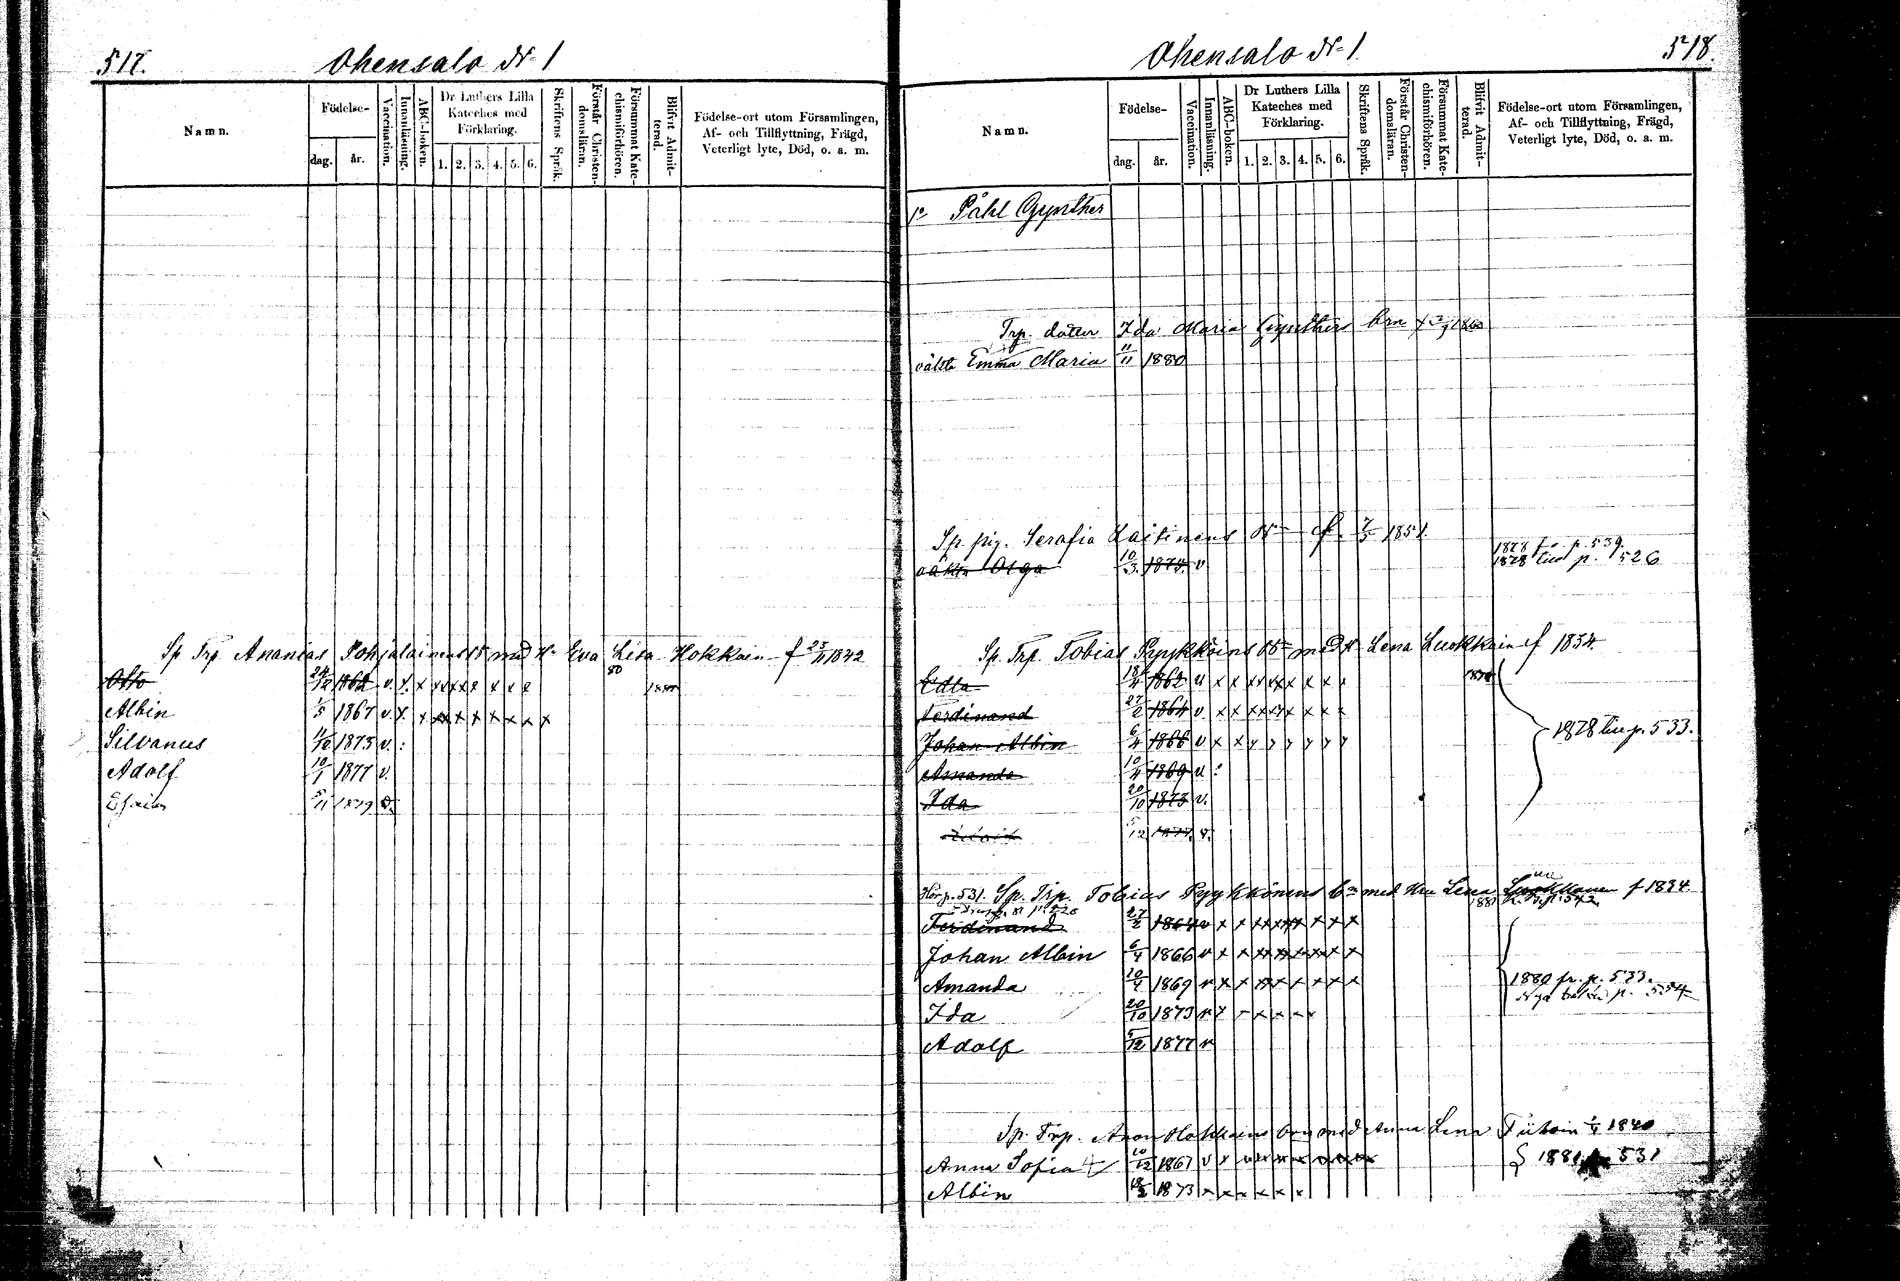 517.
Ohensalo Nr 1
Namn.
Födelse-
dag. år.
Vaccination.
Innanläsning.
ABC-boken.
Dr Luthers Lilla
Kateches med
Förklaring.
1. 2. 3. 4. 5. 6.
Skriftens Språk.
Förstår Christen-
domsläran.
Försummat Kate-
chismiförhören.
Blifvit Admit-
terad.
Födelse-ort utom Församlingen,
Af- och Tillflyttning, Frägd,
Veterligt lyte, Död, o. a. m.
Sp Trp Ananias Pohjalainens med H. Eva Lisa Hokkain f 25/11 1842
Otto 24/12 1862 v. x x x x x x x x x
Albin 1/5 1867 v. x x x x x x x x x x
Silvanus 11/12 1875 v. :
Adolf 10/1 1877 v.
Esaias 5/11 1879 v.
518.
Ohensalo Nr 1.
Namn.
Födelse-
dag. år.
Vaccination.
Innanläsning.
ABC-boken.
Dr Luthers Lilla
Kateches med
Förklaring.
1. 2. 3. 4. 5. 6.
Skriftens Språk.
Förstår Christen-
domsläran.
Försummat Kate-
chismiförhören.
Blifvit Admit-
terad.
Födelse-ort utom Församlingen,
Af- och Tillflyttning, Frägd,
Veterligt lyte, Död, o. a. m.
Påhl Gynther
Trp. dotter Ida Maria Gynthers brn
oäkta Emma Maria 11/11 1880
Sp. pig. Serafia Laitinens f. 7/5 1851.
1878 fr. p. 539.
oäkta Olga 10/3 1875. v 1878 till p. 526
Sp. Trp. Tobias Pyykköins med H Lena Luokkain f 1834.
Edla 18/4 1862 v x x x x x x x x x
Ferdinand 27/2 1864 v. x x x x x x x x x
Johan Albin 6/4 1866 v x x y y y y y y
1878 till p. 533.
Amanda 10/4 1869 v :
Ida 20/10 1873 v.
5/12 1877. v.
Hör p. 531. Sp. Trp. Tobias Pyykkönens med Hu Lena f 1834
Ferdinand 27/2 1864 v x x x x x x x x x
Johan Albin 6/4 1866 v x x x x x x x x
Amanda 10/4 1869 v x x x x x x x x
1880 fr. p. 533.
Nya boken p. 554
Ida 20/10 1873 v x x x x x
Adolf 5/12 1877 v
Sp. Trp. Aron Hokkains brn med Anna Lena 1840
Anna Sofia 10/12 1867 v x x x x x x x x 1881 531
Albin 18/2 1873 x x x x x x